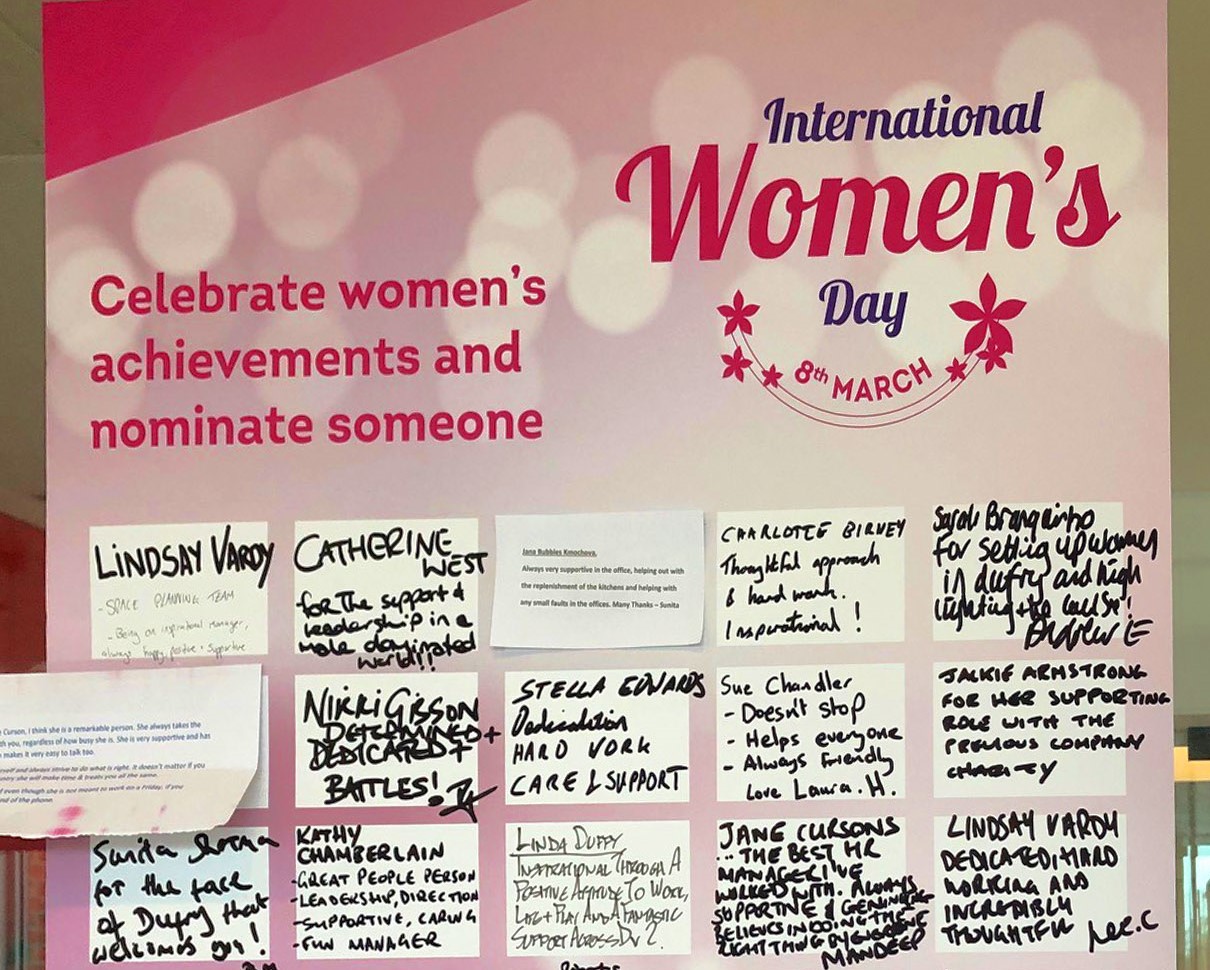 International
Women's
Day
8th MARCH
Celebrate women's
achievements and
nominate someone
LINDSAY VARDY
- SPACE PLANNING TEAM
- Being an inspirational manager,
always happy, positive + supportive
CATHERINE
WEST
for the support &
leadership in a
male dominated
world!!
Jana Bubbles Kmochova.
Always very supportive in the office, helping out with
the replenishment of the kitchens and helping with
any small faults in the offices. Many Thanks – Sunita
CHARLOTTE BIRNEY
Thoughtful approach
& hard work.
Inspirational!
Sarah Branquinho
for setting up women
in dufry and high
lighting the cause!
Andrew E
Curson, I think she is a remarkable person. She always takes the
with you, regardless of how busy she is. She is very supportive and has
makes it very easy to talk too.
and always strive to do what is right. It doesn't matter if you
she will make time & treats you all the same.
even though she is not meant to work on a Friday, if you
end of the phone.
NIKKI GIBSON
DETERMINED +
DEDICATED +
BATTLES!
STELLA EDWARDS
Dedication
HARD WORK
CARE & SUPPORT
Sue Chandler
- Doesn't stop
- Helps everyone
- Always friendly
Love Laura. H.
JACKIE ARMSTRONG
FOR HER SUPPORTING
ROLE WITH THE
PREVIOUS COMPANY
CHARITY
Sunita
for the face
of Dufry that
welcomes you!
KATHY
CHAMBERLAIN
- GREAT PEOPLE PERSON
- LEADERSHIP, DIRECTION
- SUPPORTIVE, CARING
- FUN MANAGER
LINDA DUFFY
INSPIRATIONAL THROUGH A
POSITIVE ATTITUDE TO WORK,
LIFE + PLAY AND A FANTASTIC
SUPPORT ACROSS DIV 2.
JANE CURSONS
... THE BEST HR
MANAGER I'VE
WORKED WITH. ALWAYS
SUPPORTIVE & GENUINE
BELIEVES IN DOING THE
RIGHT THING BY EVERYONE
MANDEEP
LINDSAY VARDY
DEDICATED, HARD
WORKING AND
INCREDIBLY
THOUGHTFUL
Lee.C